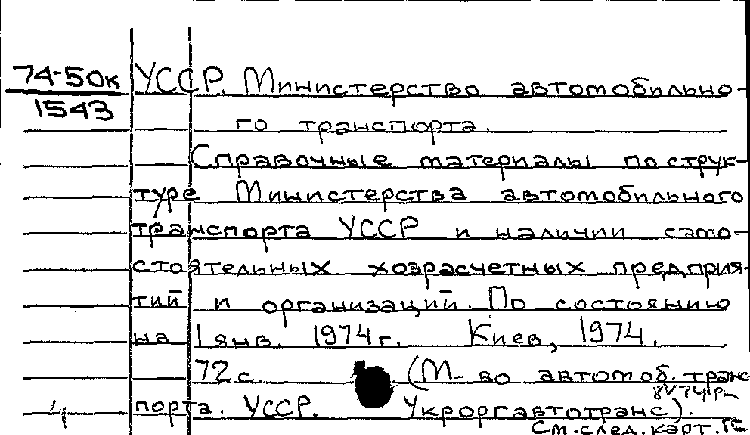 74-50к УССР. Министерство автомобильно-
1543
го транспорта.
Справочные материалы по струк-
туре Министерства автомобильного
транспорта УССР и наличии само-
стоятельных хозрасчетных предприя-
тий и организаций. По состоянию
на 1 янв. 1974 г. Киев, 1974.
72 с. (М-во автомоб. транс
порта. УССР. Укроргавтотранс).
См. след. карт.